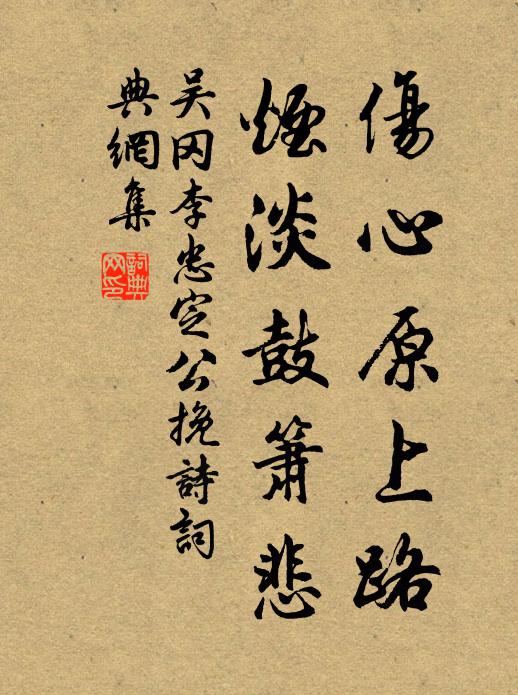 傷心原上路
煙淡鼓簫悲
吴冈李忠定公挽詩詞
典網集
詞典
网印